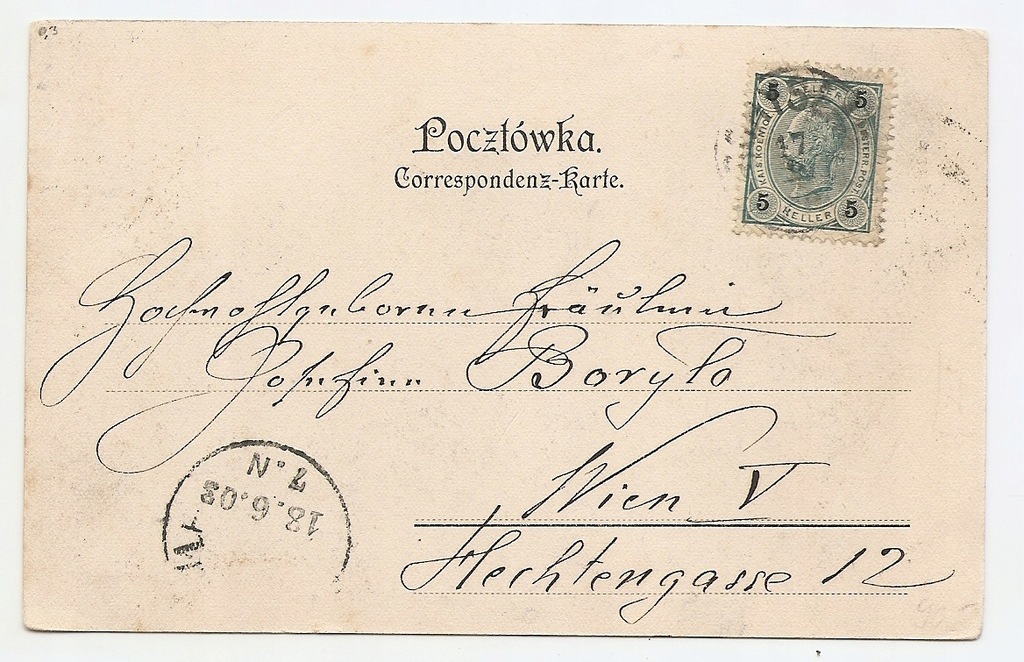 0,3
5 HELLER 5
KAIS. KOENIGL. ÖSTERR. POST.
5 HELLER 5
17
Pocztówka.
Correspondenz-Karte.
Hochwohlgeboren Fräulein
Josefine Boryło
Wien V
Hechtengasse 12
18.6.03
7.N